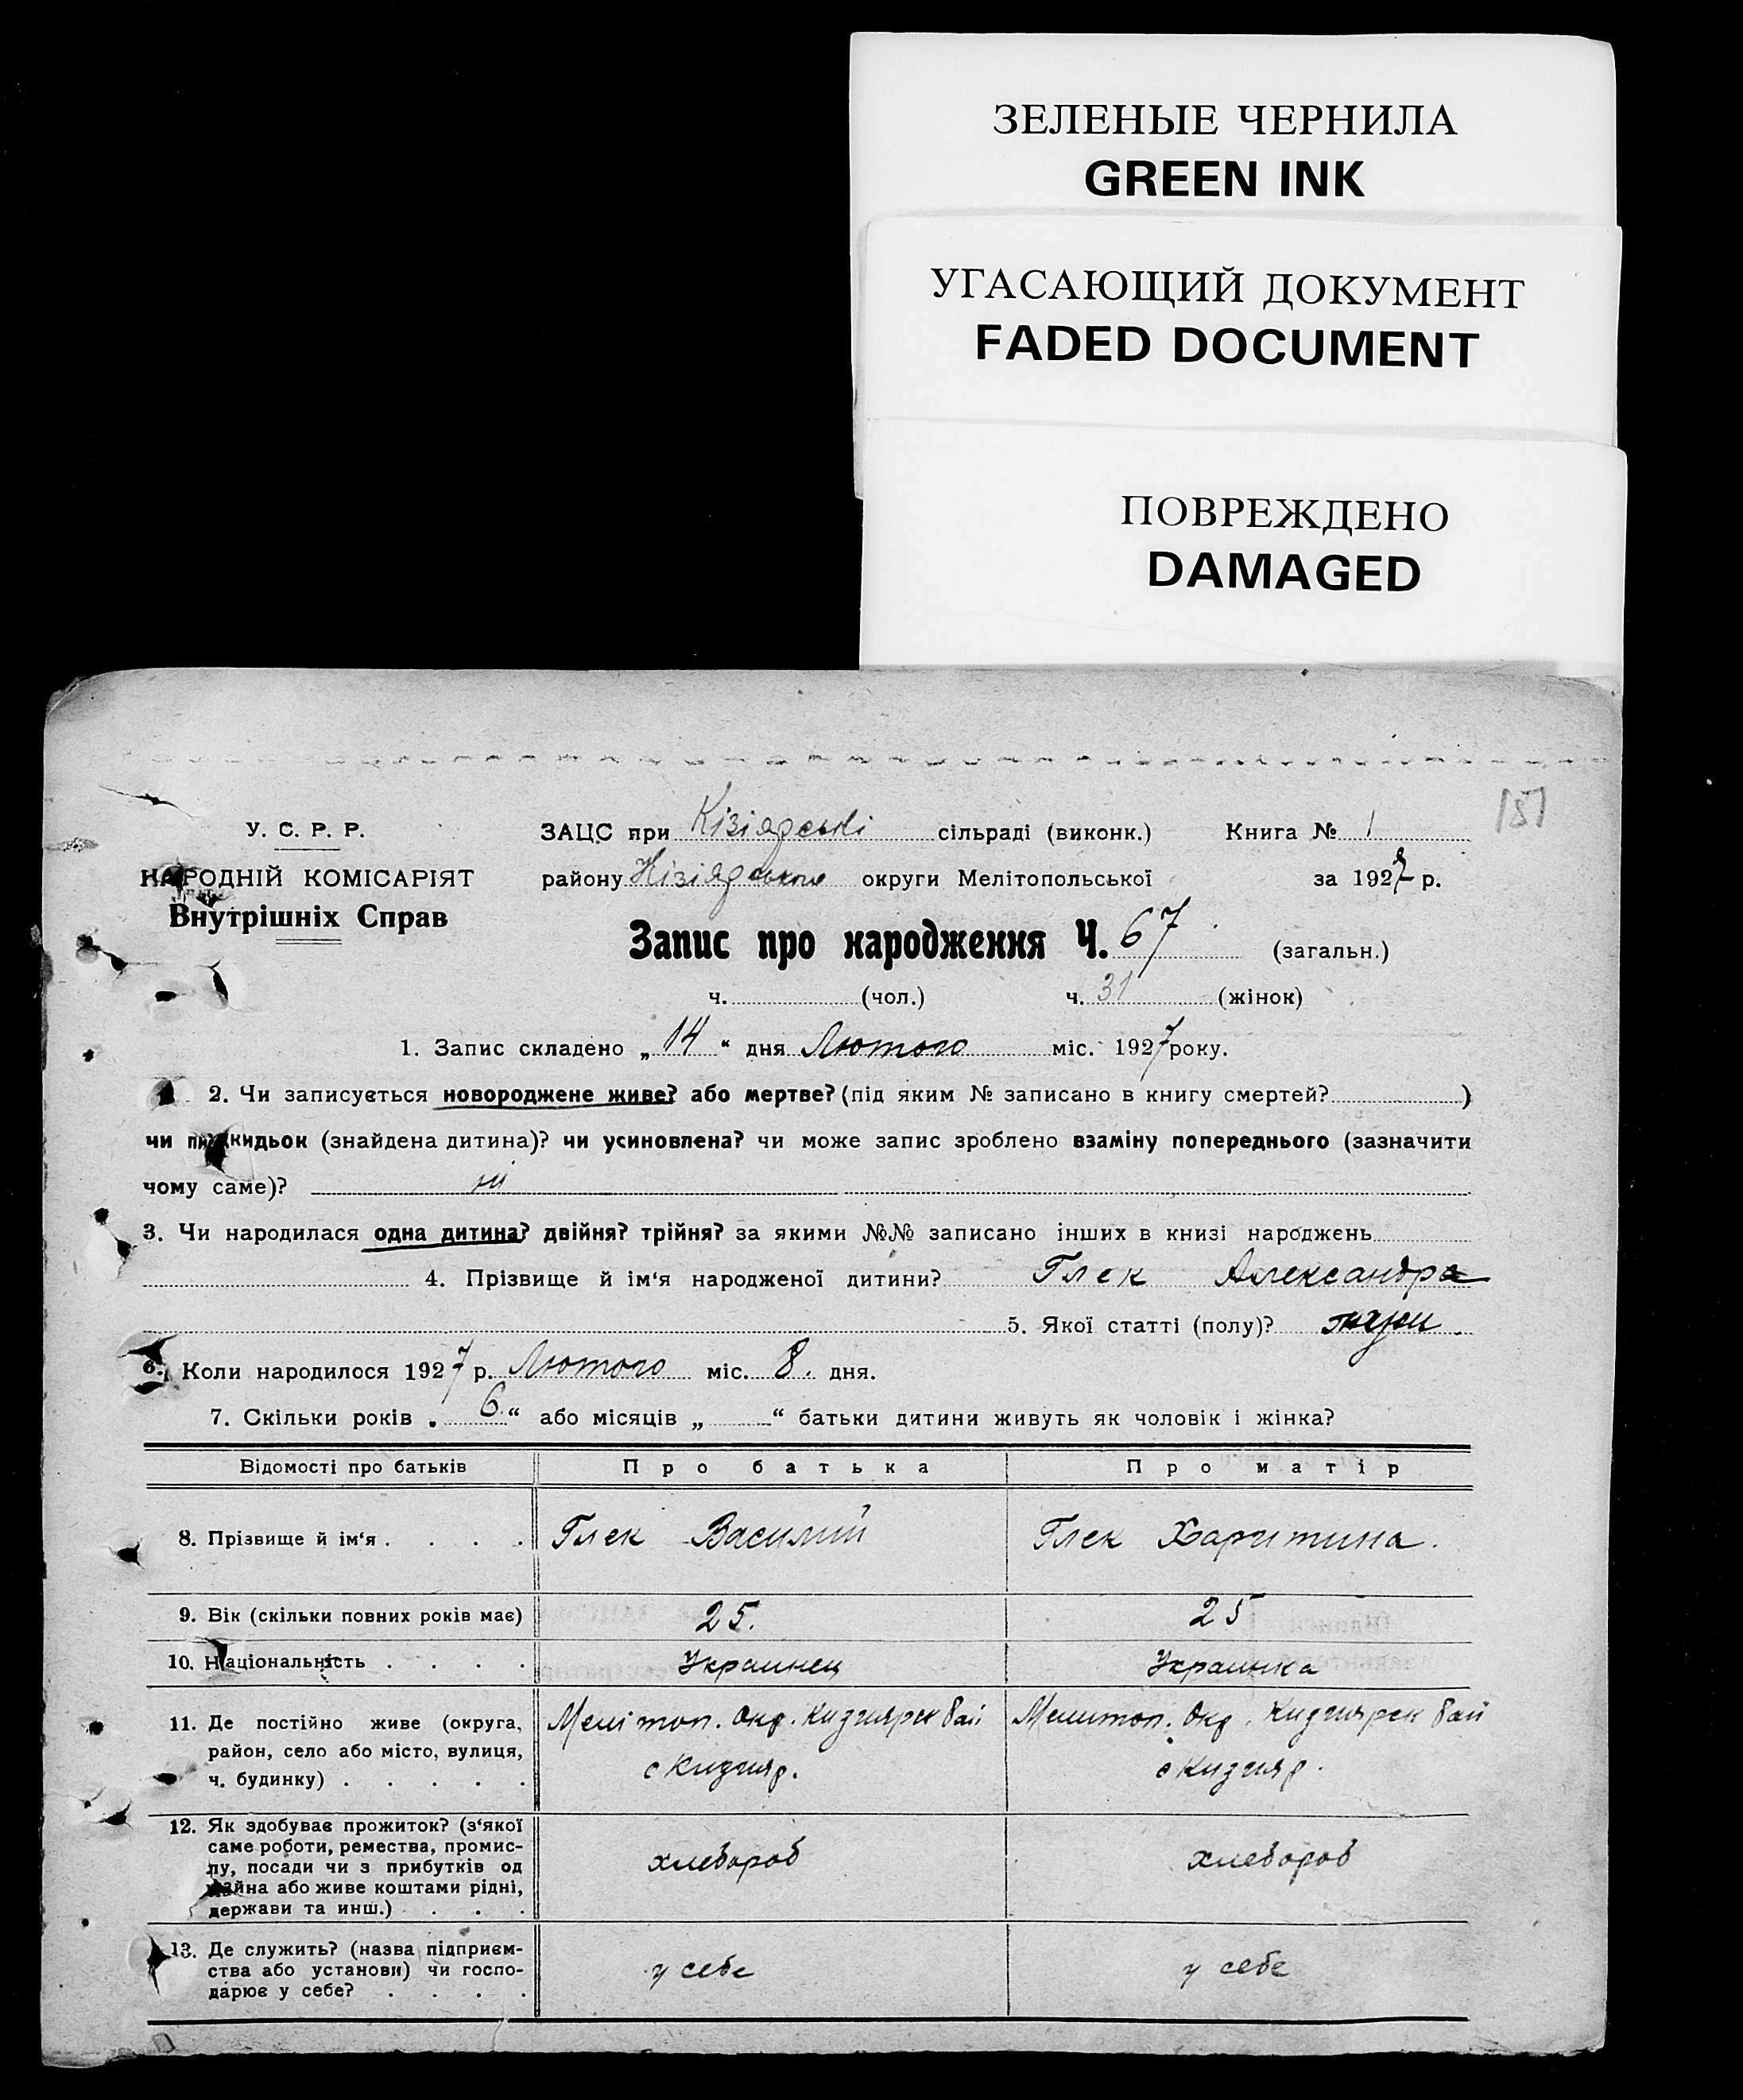 ЗЕЛЕНЫЕ ЧЕРНИЛА
GREEN INK
УГАСАЮЩИЙ ДОКУМЕНТ
FADED DOCUMENT
ПОВРЕЖДЕНО
DAMAGED
151
У. С. Р. Р.
НАРОДНІЙ КОМІСАРІЯТ
Внутрішніх Справ
ЗАЦС при Кізіярські сільраді (виконк.) Книга № 1
району Кізіярського округи Мелітопольської за 1927 р.
Запис про народження Ч. 67 (загальн.)
ч. (чол.) ч. 31 (жінок)
1. Запис складено „ 14 “ дня Лютого міс. 1927 року.
2. Чи записується новороджене живе? або мертве? (під яким № записано в книгу смертей? )
чи підкидьок (знайдена дитина)? чи усиновлена? чи може запис зроблено взаміну попереднього (зазначити
чому саме)? ні
3. Чи народилася одна дитина? двійня? трійня? за якими №№ записано інших в книзі народжень
4. Прізвище й ім‘я народженої дитини? Глек Александра
5. Якої статті (полу)?
6. Коли народилося 1927 р. Лютого міс. 8. дня.
7. Скільки років „ 6 “ або місяців „ “ батьки дитини живуть як чоловік і жінка?
Відомості про батьків Про батька Про матір
8. Прізвище й ім‘я . . . . Глек Василий Глек Харитина.
9. Вік (скільки повних років має) 25. 25
10. Національність . . . . Украинец Украинка
11. Де постійно живе (округа, Мелітоп. Окр. Кизиярск Рай Мелитоп. Окр. Кизиярск Рай
район, село або місто, вулиця,
ч. будинку) . . . . . с Кизияр. с Кизияр.
12. Як здобуває прожиток? (з‘якої
саме роботи, ремества, промис-
лу, посади чи з прибутків од хлебороб хлебороб
майна або живе коштами рідні,
держави та инш.) . . .
13. Де служить? (назва підприєм-
ства або установи) чи госпо- у себе у себе
дарює у себе? . . . .